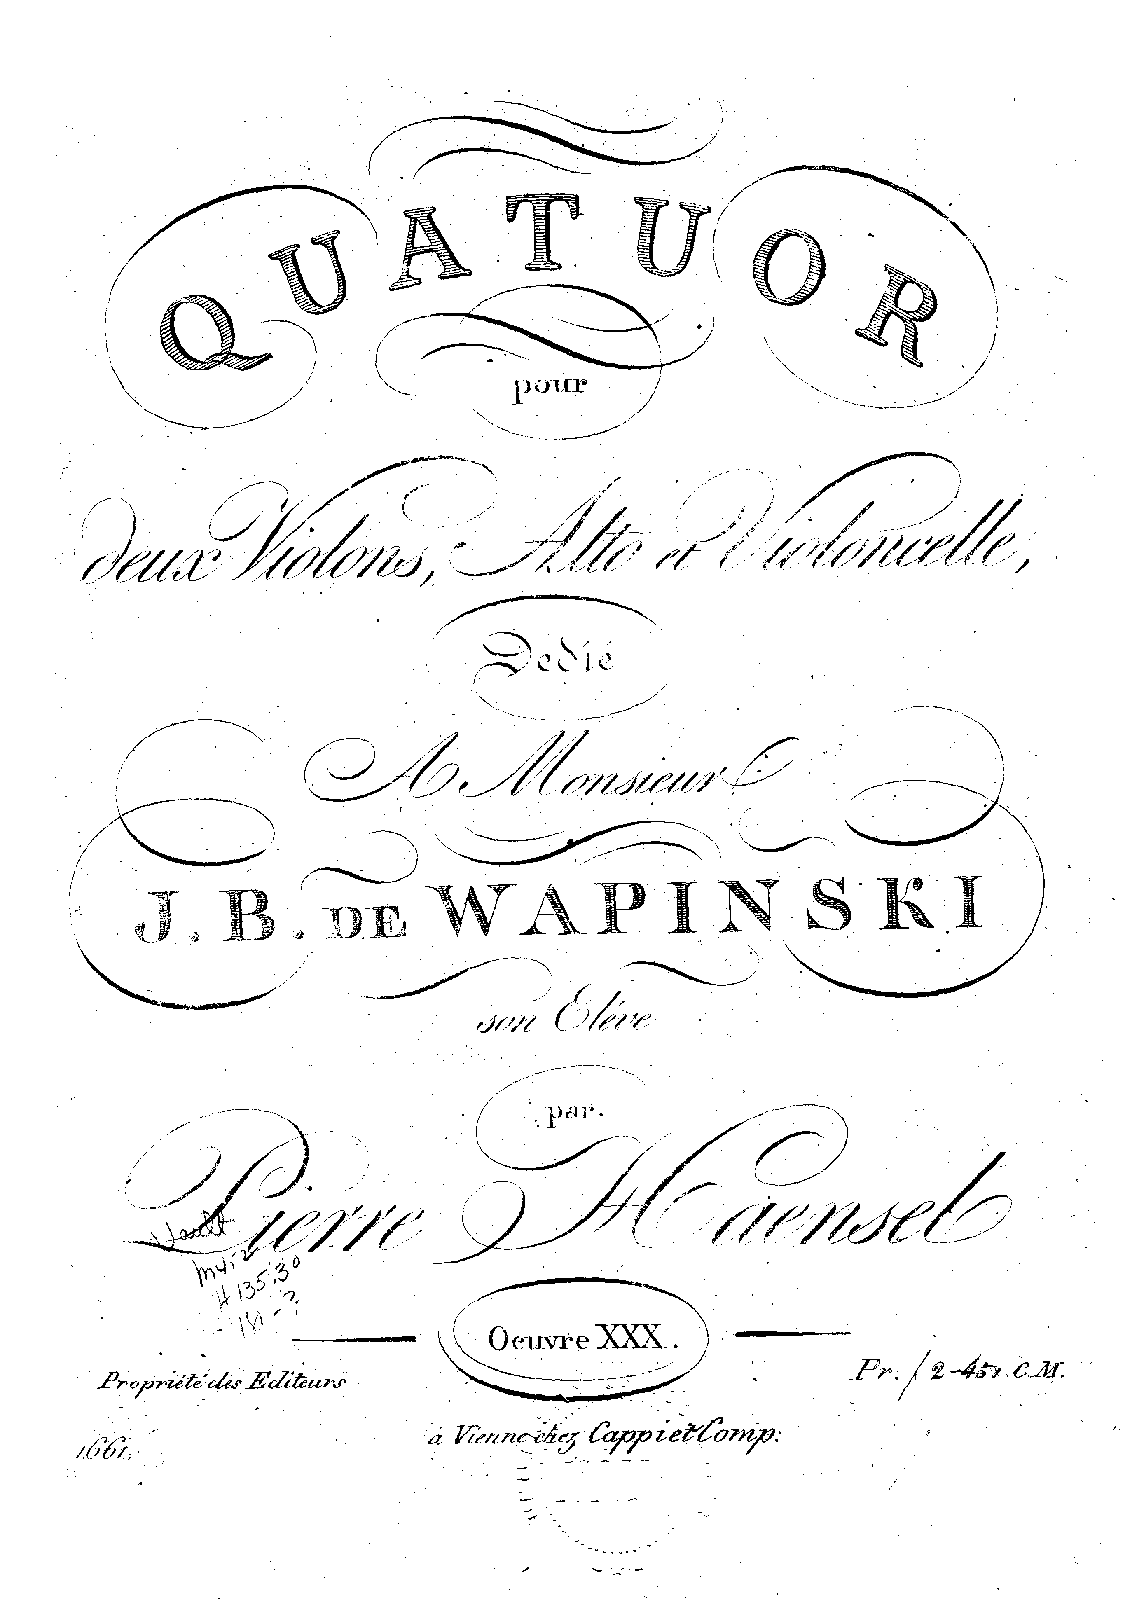 QUATUOR
pour
deux Violons, Alto et Violoncelle,
Dedié
A Monsieur
J. B. DE WAPINSKI
son Elève
par.
Pierre Haensel
H135.30
Oeuvre XXX.
Propriété des Editeurs
Pr. f 2-45x. C.M.
à Vienne chez Cappi et Comp:
1661.